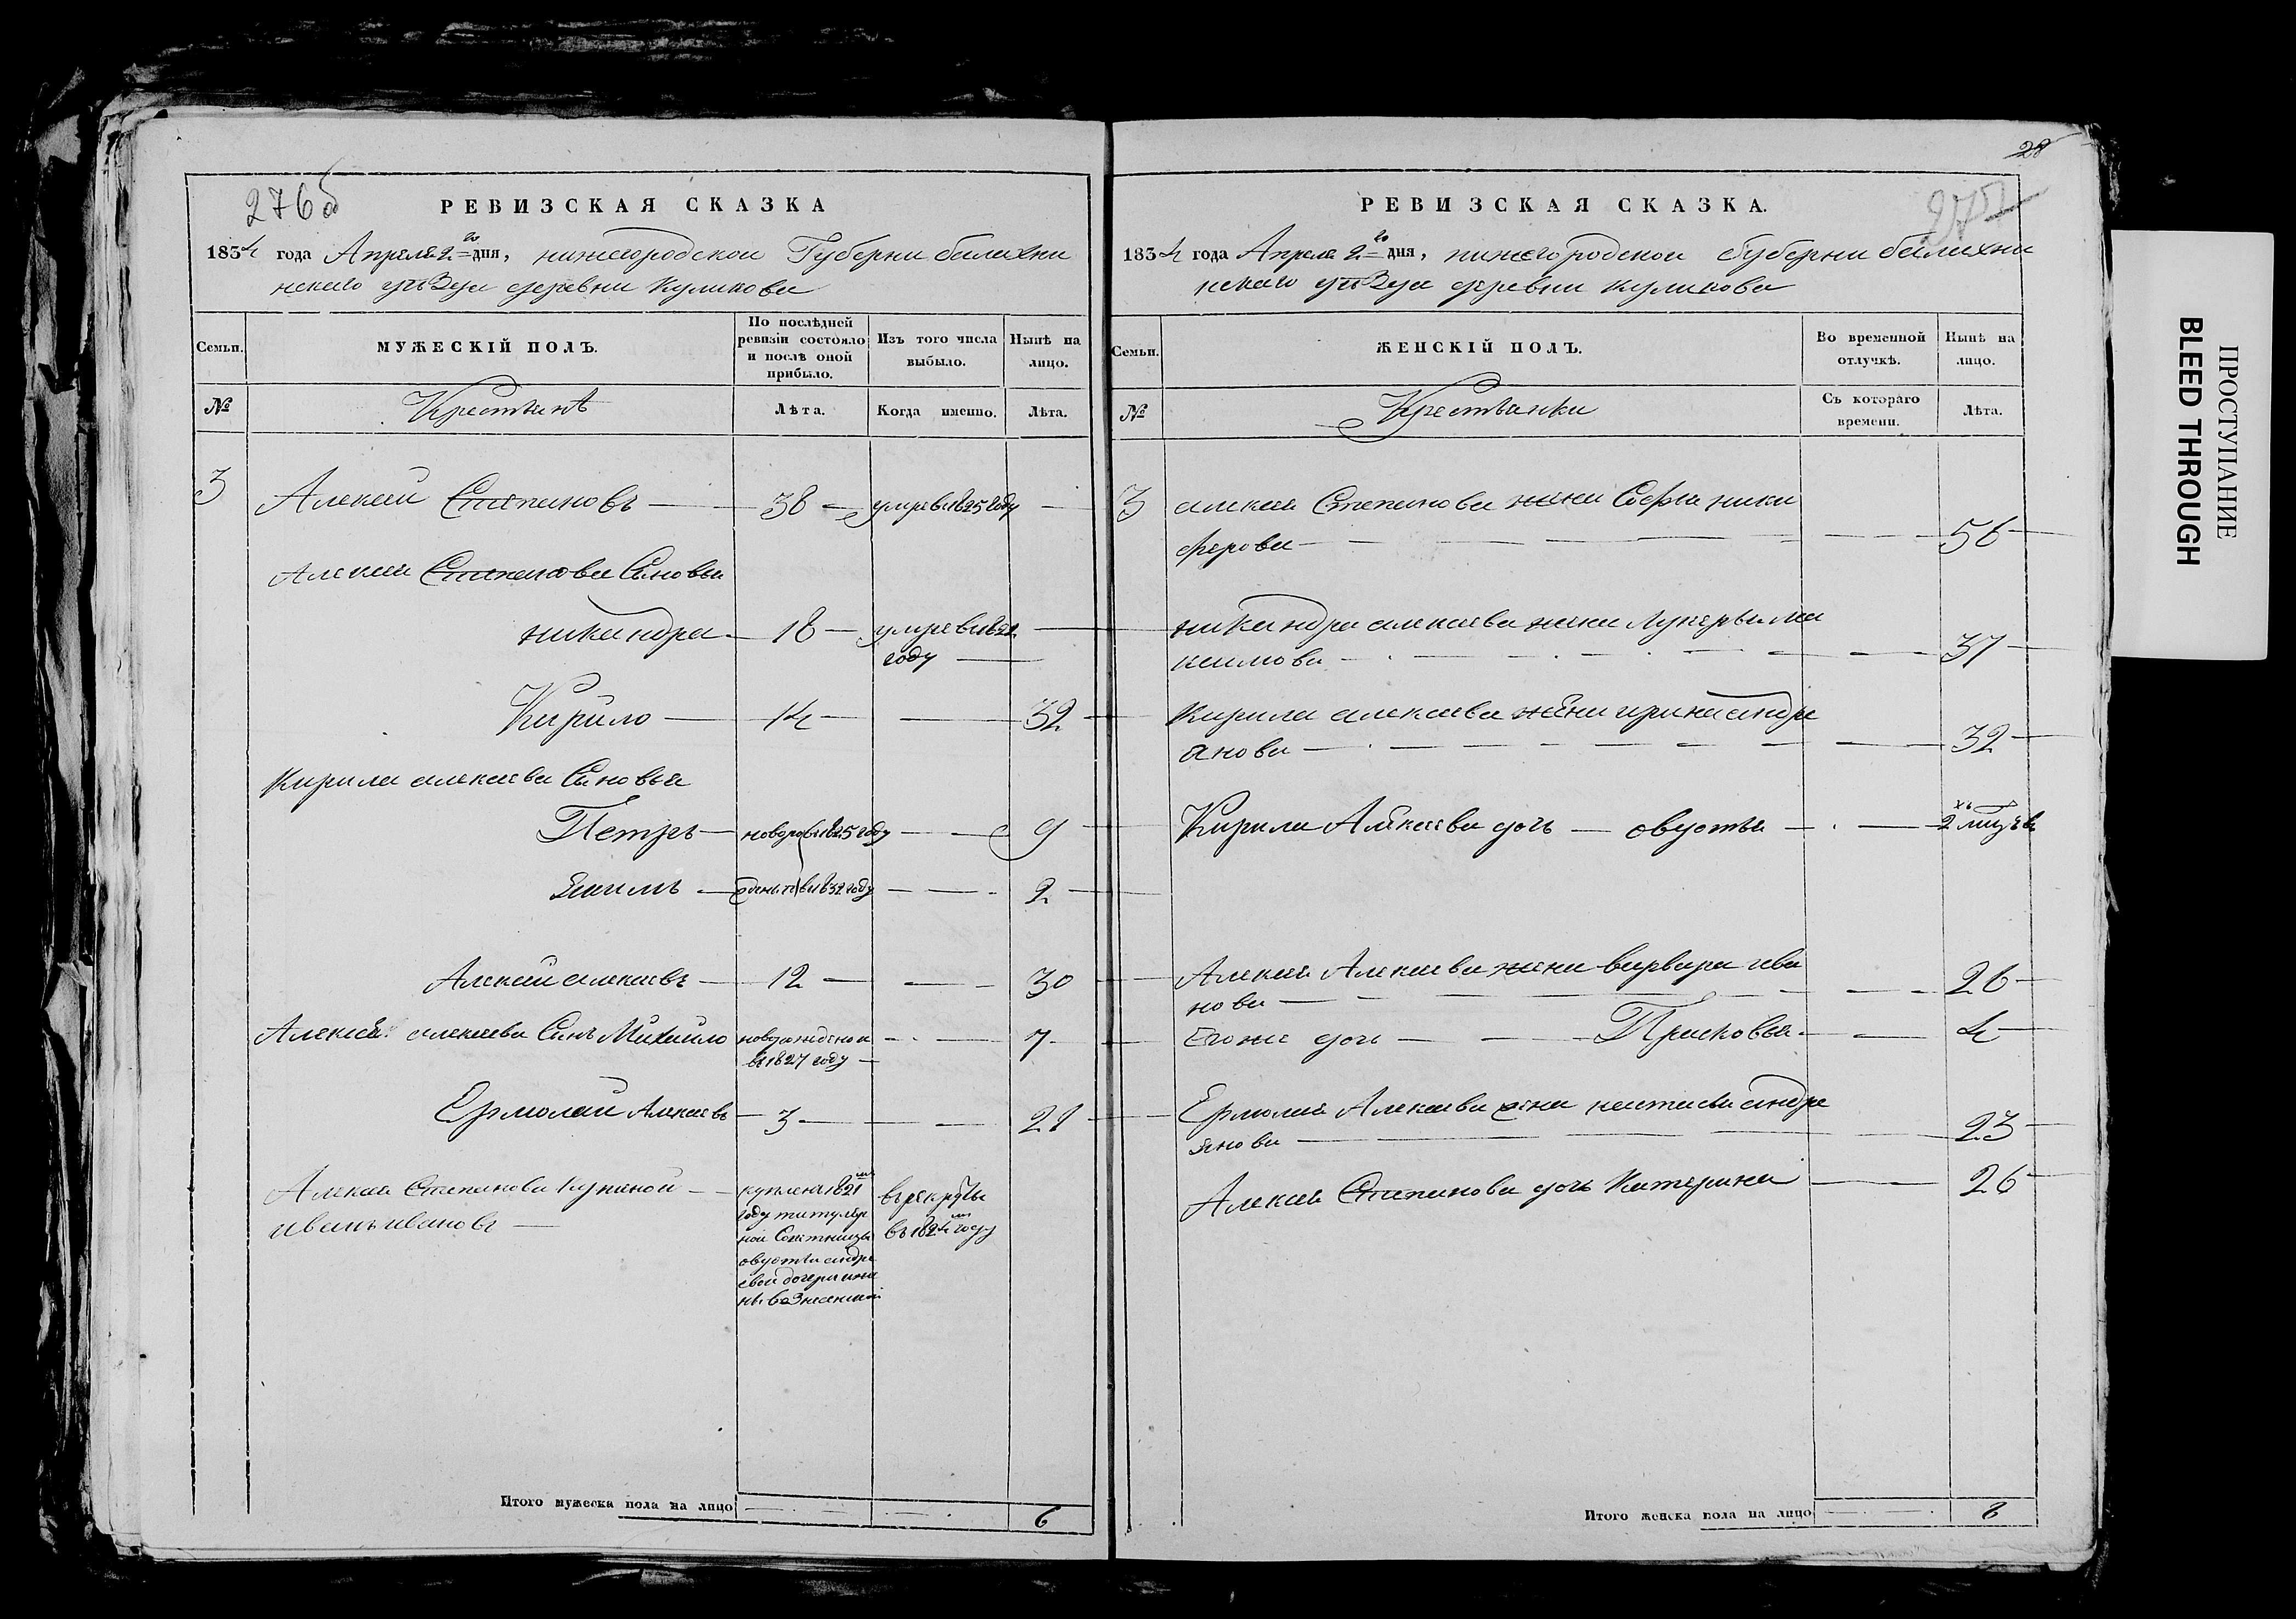 276об
РЕВИЗСКАЯ СКАЗКА
1834 года Апреля 2го дня, нижегородской Губерни балахни
нскаго уѣзда деревни Куликова
Семьи.
МУЖЕСКІЙ ПОЛЪ.
По послѣдней ревизіи состояло и послѣ оной прибыло.
Изъ того числа выбыло.
Нынѣ на лицо.
№
Крестьянѣ
Лѣта.
Когда именно.
Лѣта.
3 Алексей Степановъ 38 умре в 1825 году
Алексея Степанова Сыновья
никандра 18 умре в 1822
году
Кирило 14 32
Кирила алексева Сыновья
Петръ новоро в 1825 году 9
Якимъ жденые в 1832 году 2
Алексей алексевъ 12 30
Алексея алексева Сынъ Михаило новорожденой 7
в 1827 году
Ермолай Алексевъ 3 21
Алексея Степанова купленой
иванъ ивановъ
купленъ 1821м
году титуляр
ной Советницы
овдотьи андре
евой дочери
вознесенской
в рекруты
въ 1824м году
Итого мужеска пола на лицо 6
28
275
РЕВИЗСКАЯ СКАЗКА.
1834 года Апреля 2го дня, нижегородской Губерни балахни
нскаго уѣзда деревни куликова
Семьи.
ЖЕНСКІЙ ПОЛЪ.
Во временной отлучкѣ.
Нынѣ на лицо.
№
Крестьянки
Съ котораго времени.
Лѣта.
3 алексея Степанова жена Софья ники
ферова 56
никандра алексева жена Лукерья ма
ксимова 37
Кирила алексева жена ирина андре
анова 32
Кирила Алексева дочь овдотья 2 мицъва
Алексея Алексева жена варвара ива
нова 26
Егоже дочь Прасковья 4
Ермолая Алексева жена настасья андре
янова 23
Алексея Степанова дочь Катерина 26
Итого женска пола на лицо 8
ПРОСТУПАНИЕ
BLEED THROUGH